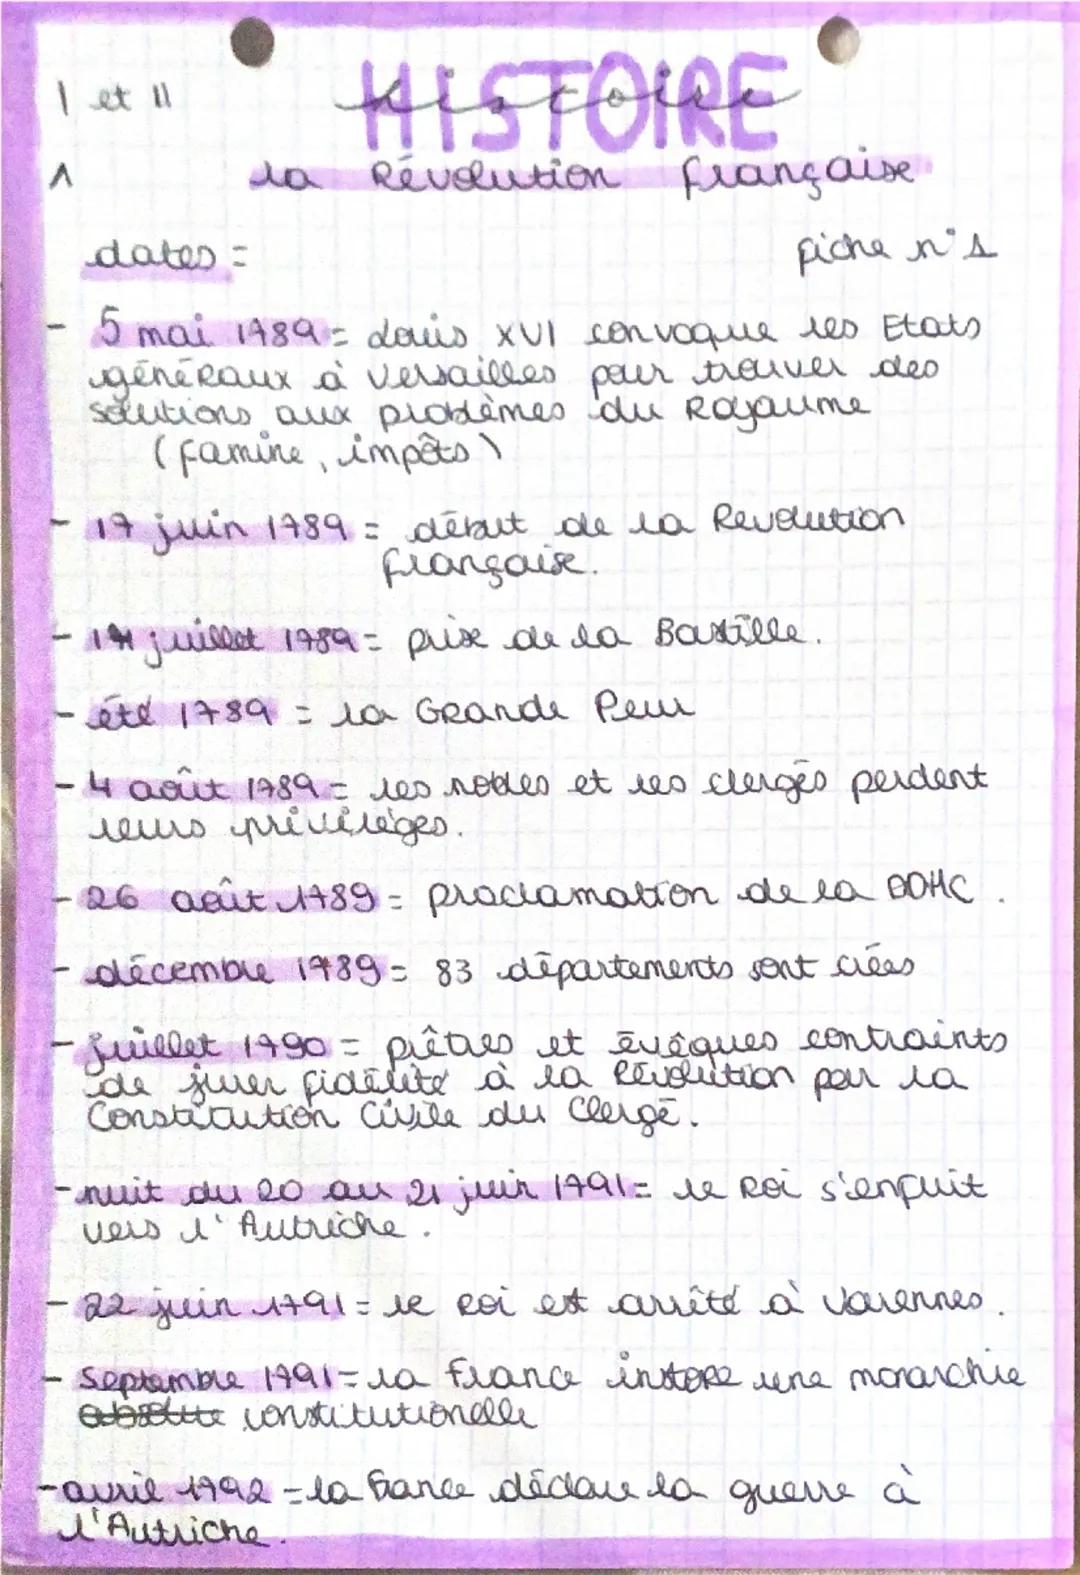 I et II
HISTOIRE
Histoire
1
La Révolution française
dates =
fiche n°1
- 5 mai 1789 = Louis XVI convoque les Etats
généraux à Versailles pour trouver des
solutions aux problèmes du Royaume
(famine, impôts)
- 17 juin 1789 = début de la Revolution
française.
- 14 juillet 1789 = prise de la Bastille.
- été 1789 = la Grande Peur
- 4 août 1789 = les nobles et les clergés perdent
leurs privilèges.
- 26 août 1789 = proclamation de la DDHC.
- décembre 1789 = 83 départements sont créés
- juillet 1790 = prêtres et évêques contraints
de jurer fidélité à la Révolution par la
Constitution Civile du Clergé.
- nuit du 20 au 21 juin 1791 = le Roi s'enfuit
vers l'Autriche.
- 22 juin 1791 = le Roi est arrêté à Varennes.
- Septembre 1791 = la France instore une monarchie
absolute constitutionelle
- avril 1792 = la France déclare la guerre à
l'Autriche.